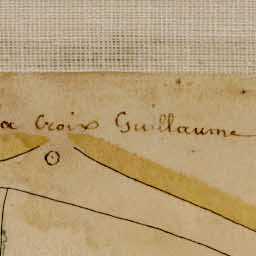 la Croix Guillaume